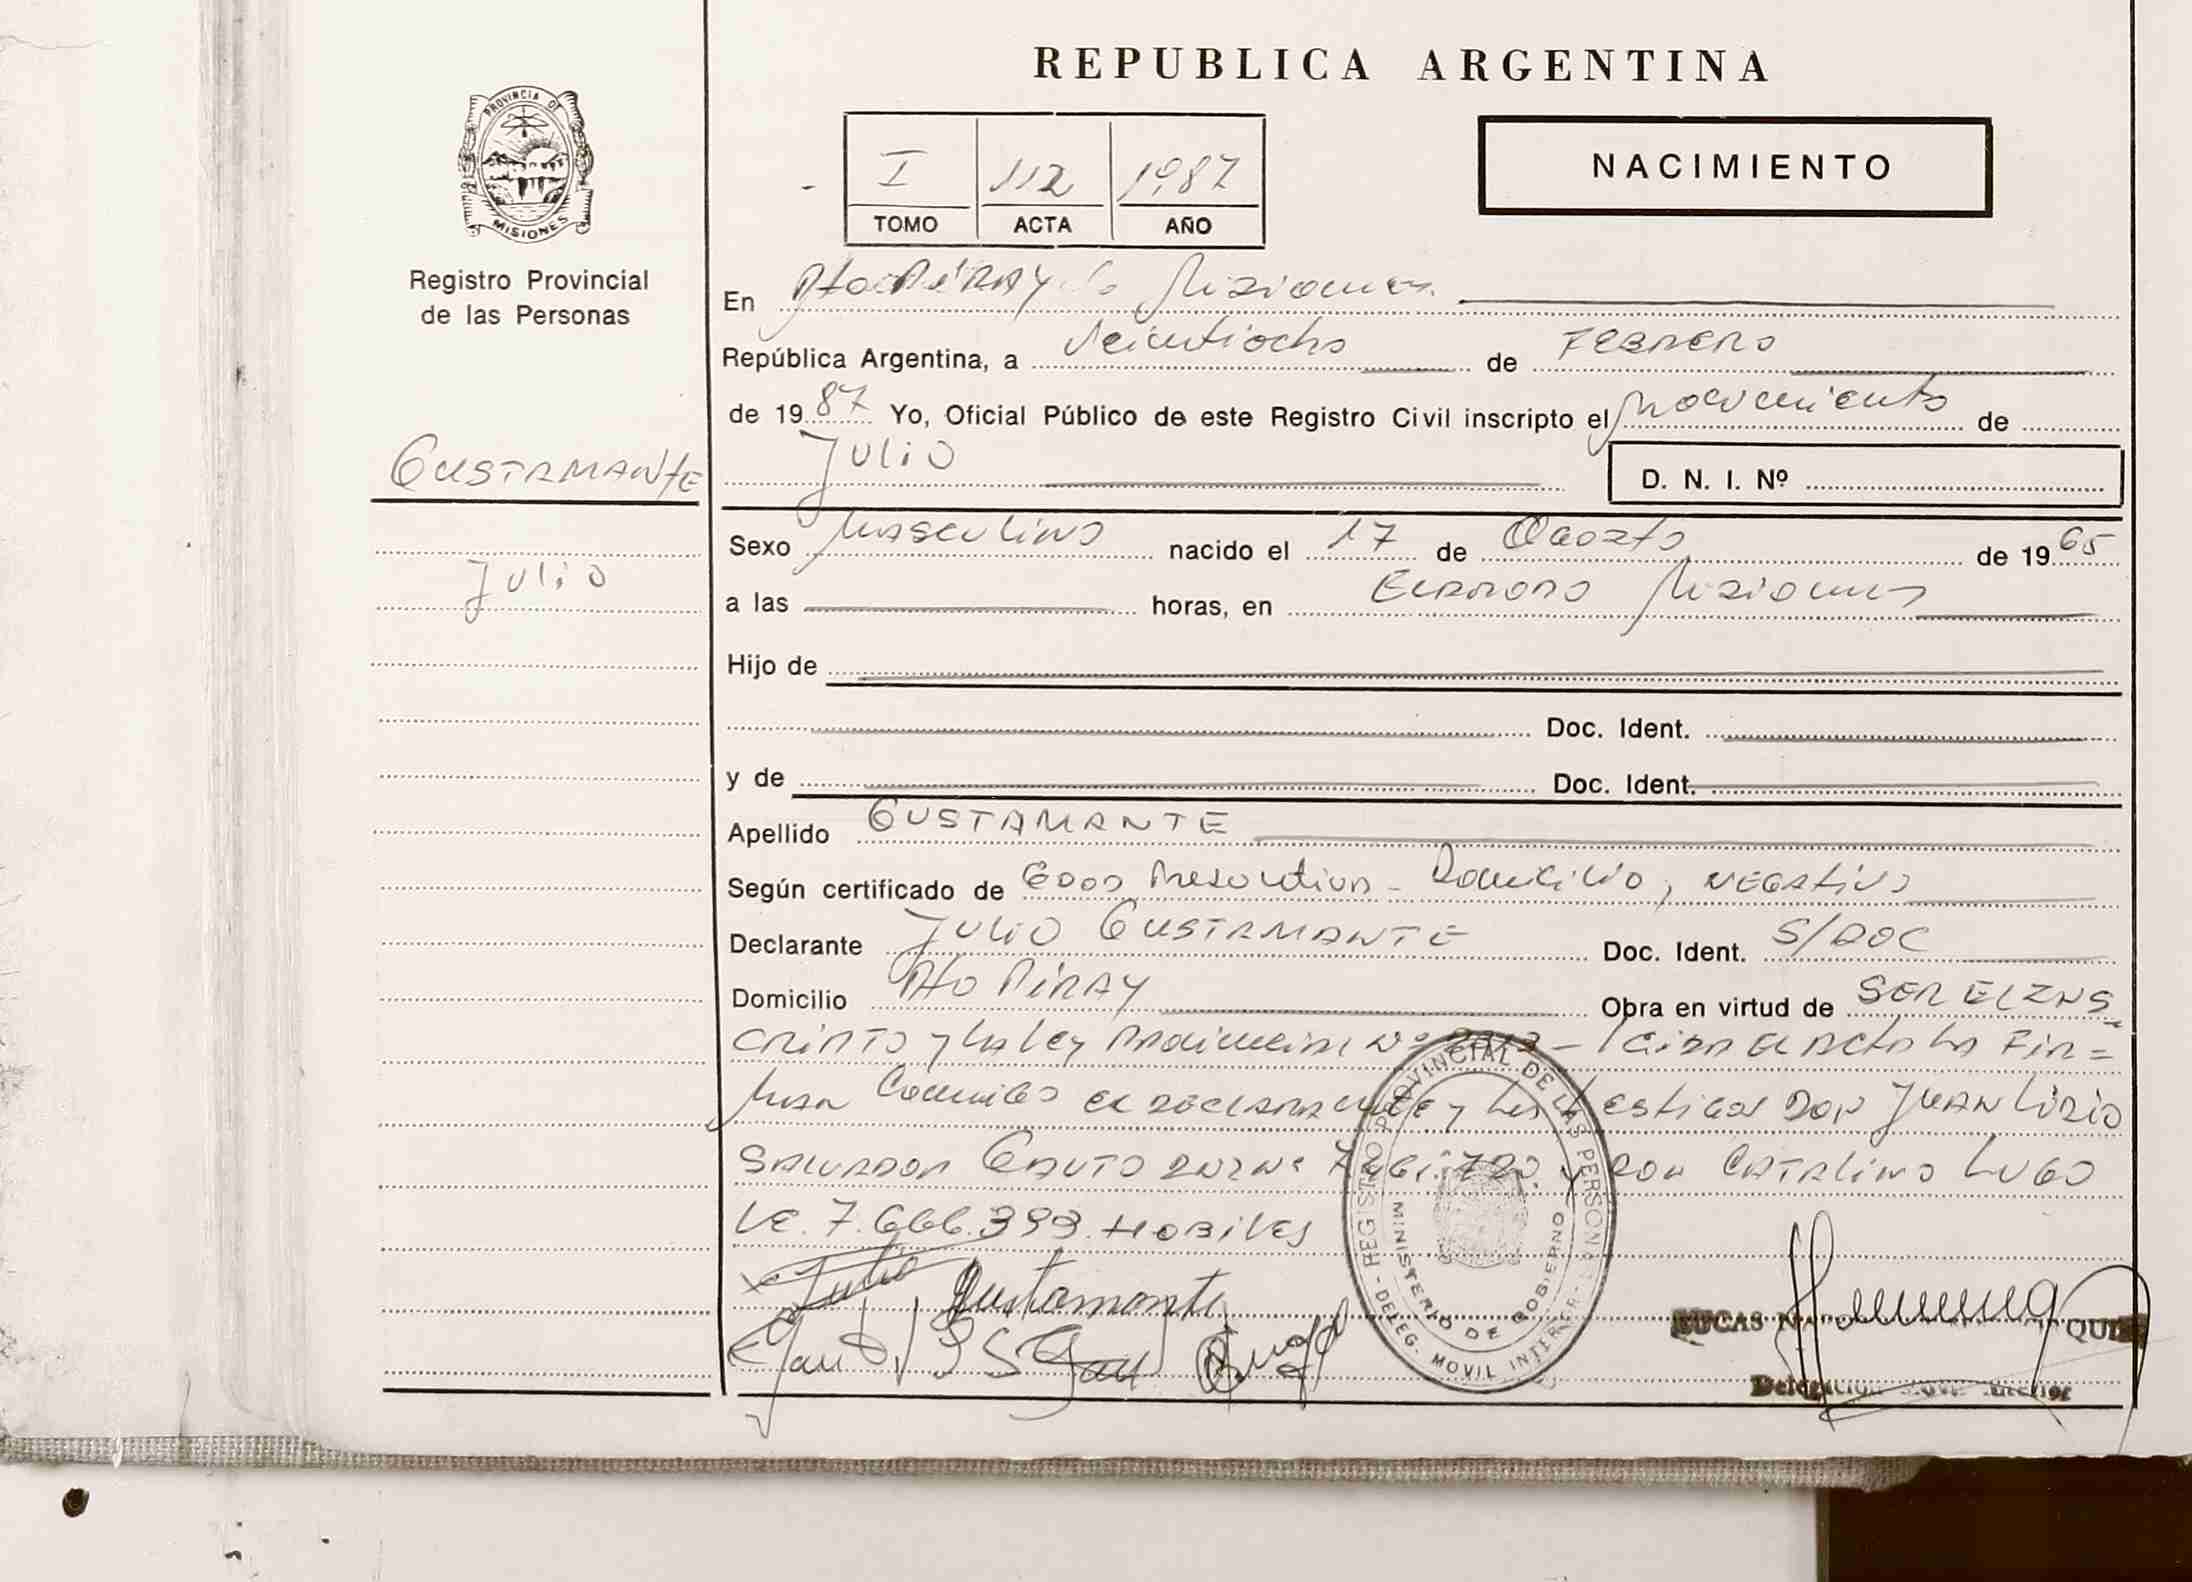 REPUBLICA ARGENTINA
PROVINCIA DE
MISIONES
Registro Provincial
de las Personas
I 112 1987
TOMO ACTA AÑO
NACIMIENTO
En Pto Piray Misiones
República Argentina, a Veintiocho de Febrero
de 1987 Yo, Oficial Público de este Registro Civil inscripto el Nacimiento de
Julio
D. N. I. Nº
GUSTAMANTE
Julio
Sexo Masculino nacido el 17 de Agosto de 1965
a las horas, en Eldorado Misiones
Hijo de
Doc. Ident.
y de Doc. Ident.
Apellido GUSTAMANTE
Según certificado de Edad Presuntiva - Domicilio, negativo
Declarante Julio GUSTAMANTE Doc. Ident. S/DOC
Domicilio Pto Piray Obra en virtud de SER EL INS
CRIPTO y la Ley Provincial Nº - Leida el acta la Fir=
man Conmigo el declarante y los testigos Don Juan
Salvador y Don Catalino Lugo
LE. 7.666.393. Hobiles
Julio Gustamante
REGISTRO PROVINCIAL DE LAS PERSONAS
MINISTERIO DE GOBIERNO
DELEG. MOVIL INTERIOR
LUCAS
Delegación Interior